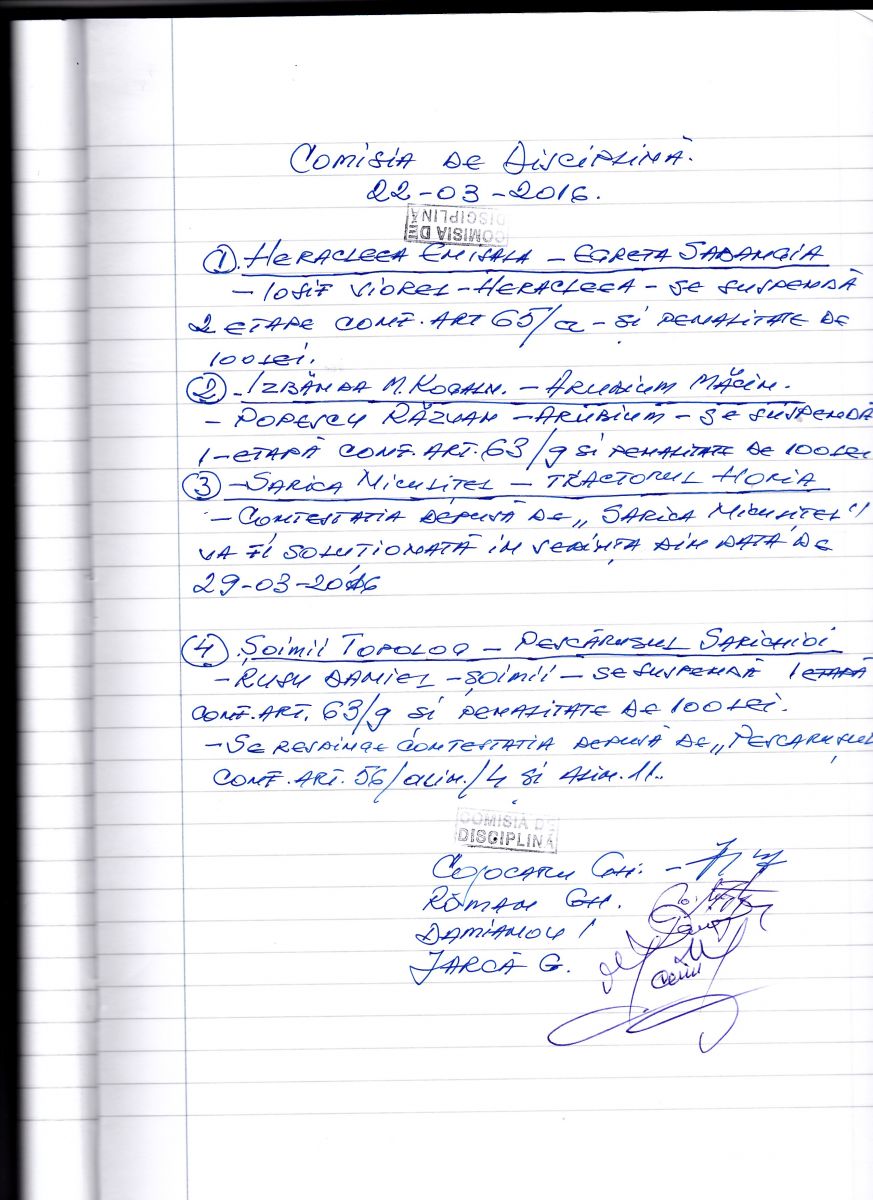 COMISIA DE DISCIPLINĂ.
22-03-2016.
COMISIA DE
DISCIPLINĂ
1. HERACLEEA ENISALA – EGRETA SABANGIA
– IOSIF VIOREL – HERACLEEA – SE SUSPENDĂ
2 ETAPE CONF. ART 65/a – ȘI PENALITATE DE
100 LEI.
2 – IZBÂNDA M. KOGALN. – ARUBIUM MĂCIN.
– POPESCU RĂZVAN – ARUBIUM – SE SUSPENDĂ
1 – ETAPĂ CONF. ART. 63/g SI PENALITATE DE 100 LEI
3 – SARICA NICULITEL – TRACTORUL HORIA
– CONTESTATIA DEPUSĂ DE „SARICA NICULITEL"
VA FI SOLUȚIONATĂ IN SEDINȚA DIN DATA DE
29-03-2016
4. ȘOIMII TOPOLOG – PESCĂRUSUL SARICHIOI
– RUSU DANIEL – ȘOIMII – SE SUSPENDĂ 1 ETAPĂ
CONF. ART. 63/g SI PENALITATE DE 100 LEI.
– SE RESPINGE CONTESTATIA DEPUSĂ DE „PESCARUȘUL
CONF. ART. 56/alin./4 SI ALIN. 11.
COMISIA DE
DISCIPLINĂ
COJOCARU GH. –
ROMAN GH.
DAMIANOV I
JARCĂ G.